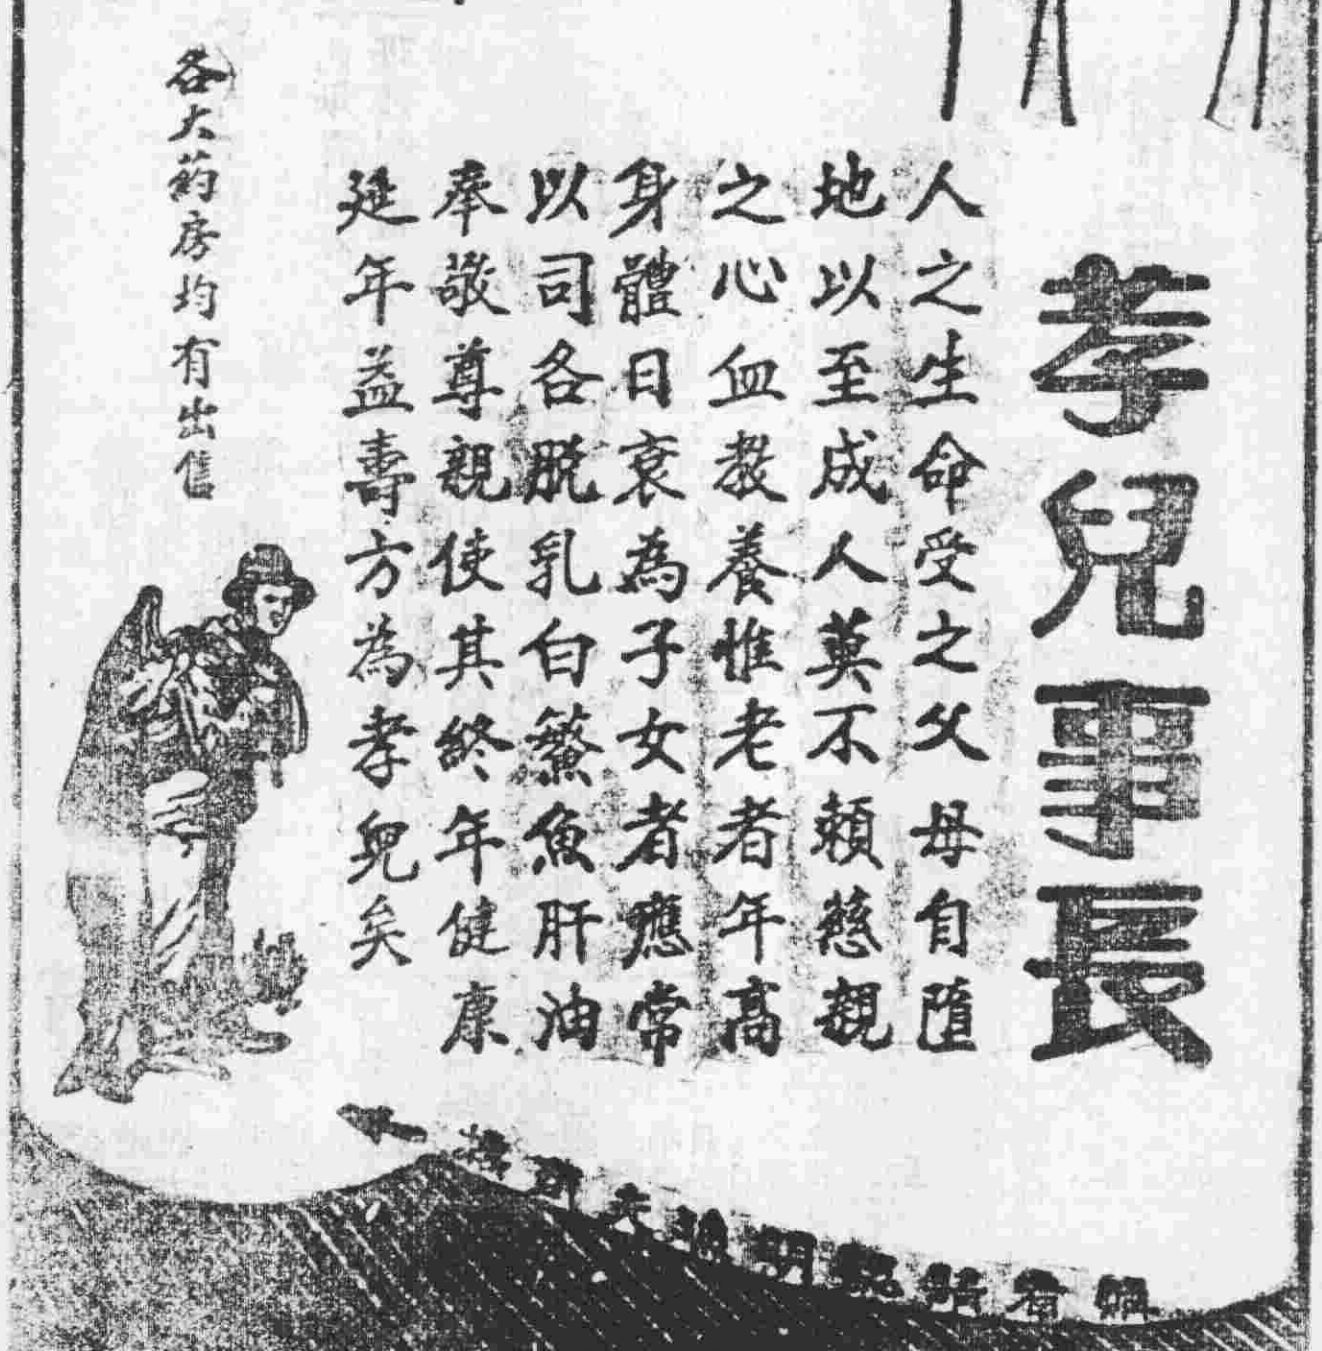 孝兒事長
人之生命受之父母自墮
地以至成人莫不賴慈親
之心血教養惟老者年高
身體日衰為子女者應常
以司各脫乳白鰵魚肝油
奉敬尊親使其終年健康
延年益壽方為孝兒矣
各大药房均有出售